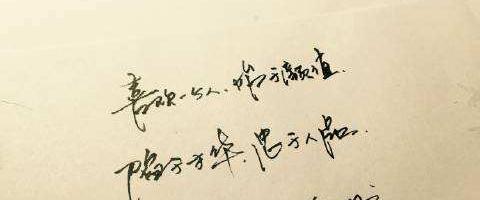 喜欢一个人,始于颜值.
陷于才华,忠于人品.